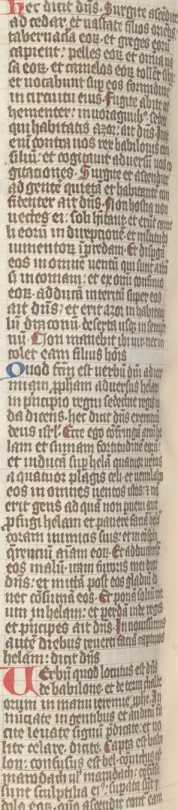 Hec dicit dñs. Surgite ascendite
ad cedar, et vastate filios orientis
tabernacła eoꝝ et greges eorum
capient: pelles eoꝝ et omia va
sa eoꝝ et camelos eoꝝ tollent sibi:
et vocabunt sup eos formidine
in circuitu. Fugite abite
hementer: in voraginibꝫ sedete
qui habitatis asor: ait dñs. Iniit
enī contra vos rex babilonis con
siliū: et cogitavit adversū vos co
gitaciones. Surgite et ascendite
ad gentē quietā et habitantē con
fidenter ait dñs. Non hostia nō
vectes ei: soli hītant. et erūt cameli
eoꝝ in direpcionē et multitudo
iumentoꝝ in predam. Et dispgā
eos in omnē ventū
et ex omi confinio
eoꝝ adducā interitū super eos
ait dñs: et erit asor in habitaculū
draconū deserta usqꝫ in sempiter
nū. Non manebit ibi vir: nec in
colet eam filius hoīs.
Quod factū est verbū dñi ad iere
miam ꝓpham adversus helam
in principio regni sedechie regis iu
da dicens. hec dicit dñs exercituū
deus isrl. Ecce ego confringā arcū he
lam et sumam fortitudinē eoꝝ:
et inducā sup helā quatuor ventos
a quatuor plagis celi: et ventilabo
eos in omnes ventos istos: et nō
erit gens ad quā non pueniant
ꝓfugi helam. et pavere faciā helā
coram inimicis suis: et in cōspectu
querenciū aīam eoꝝ. Et adducā sup
eos malū: iram furoris mei dicit
dñs: et mittā post eos gladiū do
nec cōsumā eos. Et ponā soliū me
um in helam: et perdā inde reges
et principes ait dñs. In novissimis
autē diebus reverti faciā captivos
helam: dicit dñs.
Verbū quod locutus est dñs
de babilone. et de terra chalde
orum in manu ieremie ꝓphe. An
nunciate in gentibus et auditū fa
cite: levate signū predicate, et no
lite celare. dicite. Capta est babi
lon: confusus est bel: victus est
marodach
sunt sculptilia ei: supata sunt y
dola eoꝝ. quia ascendit contra eam